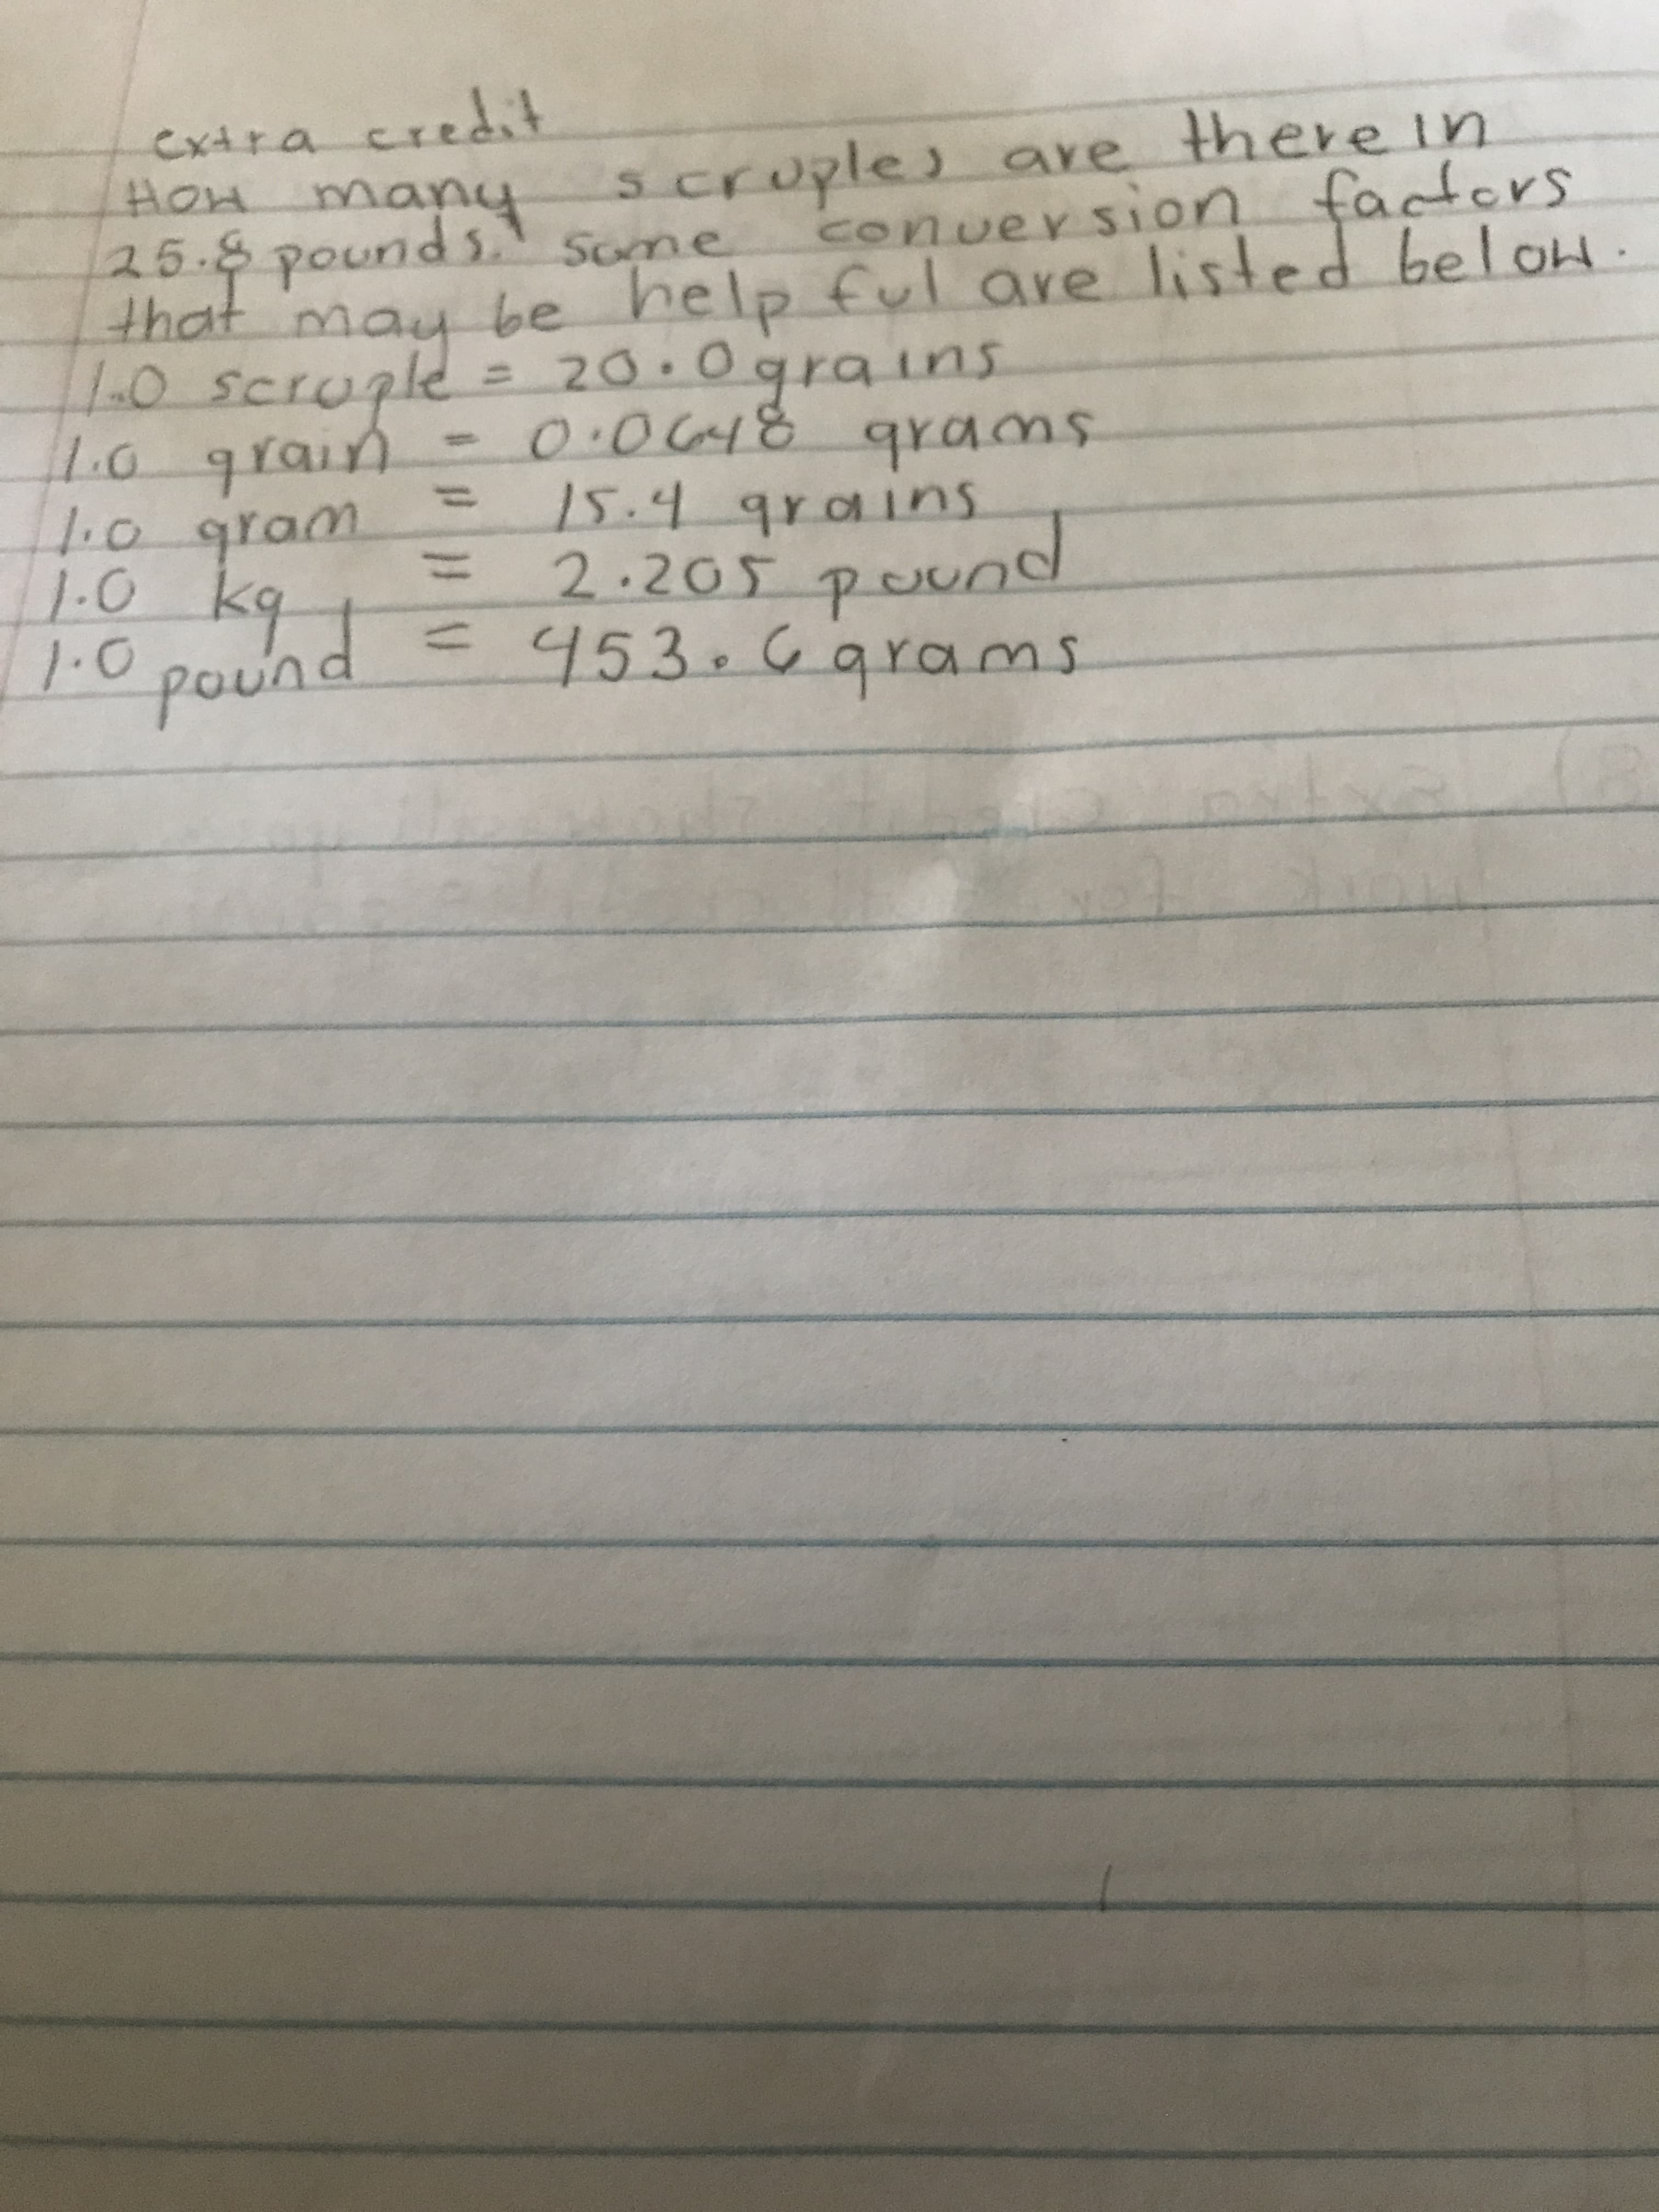 extra credit
How many scruples are there in
25.8 pounds. some conversion factors
that may be helpful are listed below.
1.0 scruple = 20.0 grains
1.0 grain = 0.0648 grams
1.0 gram = 15.4 grains
1.0 kg = 2.205 pound
1.0 pound = 453.6 grams